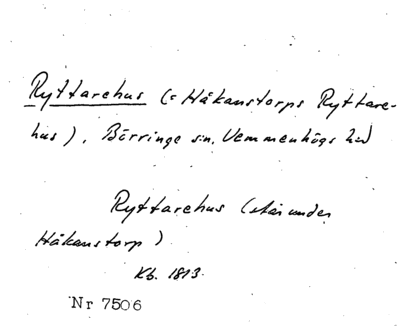 Ryttarehus (= Håkanstorps Ryttare-
hus), Börringe sn, Vemmenhögs hd
Ryttarehus (står under
Håkanstorp)
Kb. 1813.
Nr 7506